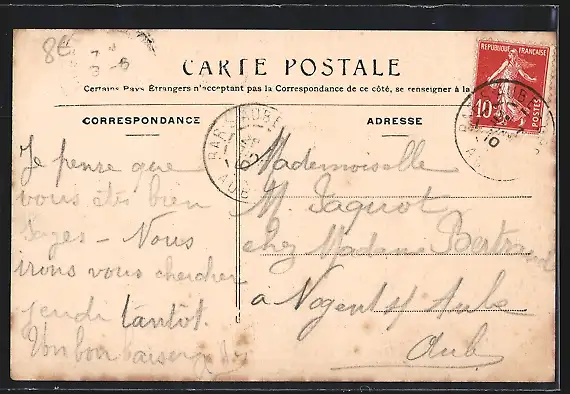 8
CARTE POSTALE
Certains Pays Étrangers n'acceptant pas la Correspondance de ce côté, se renseigner à la
CORRESPONDANCE
ADRESSE
REPUBLIQUE FRANÇAISE
10
POSTES
BAR-S-AUBE
AUBE
10
Je pense que
vous êtes bien
Sages - Nous
irons vous chercher
jeudi tantôt.
Un bon baiser
Mademoiselle
M. Jaquot
chez Madame Bertrand
à Nogent s/ Aube
Aube